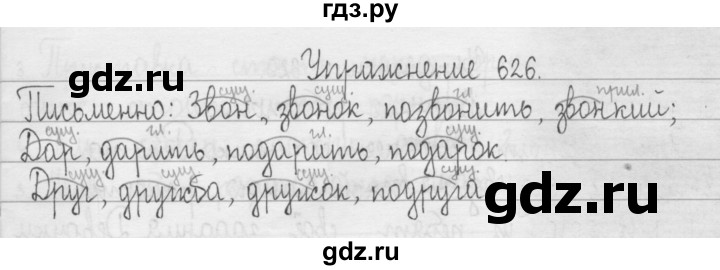 гдз.ру
Упражнение 626.
сущ. сущ. гл. прил.
Письменно: Звон, звонок, позвонить, звонкий;
сущ. гл. гл. сущ.
Дар, дарить, подарить, подарок.
сущ. сущ. сущ. сущ.
Друг, дружба, дружок, подруга
gdz.ru
gdz.ru
gdz.ru
gdz.ru
gdz.ru